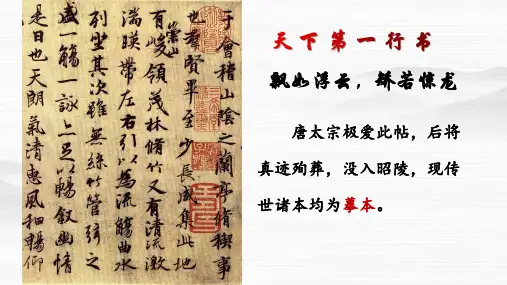 于會稽山陰之蘭亭脩禊事
也羣賢畢至少長咸集此地
有崇山峻領茂林脩竹又有清流激
湍暎帶左右引以為流觴曲水
列坐其次雖無絲竹管弦之
盛一觴一詠亦足以暢叙幽情
是日也天朗氣清惠風和暢仰
天下第一行书
飘如浮云，矫若惊龙
唐太宗极爱此帖，后将
真迹殉葬，没入昭陵，现传
世诸本均为摹本。